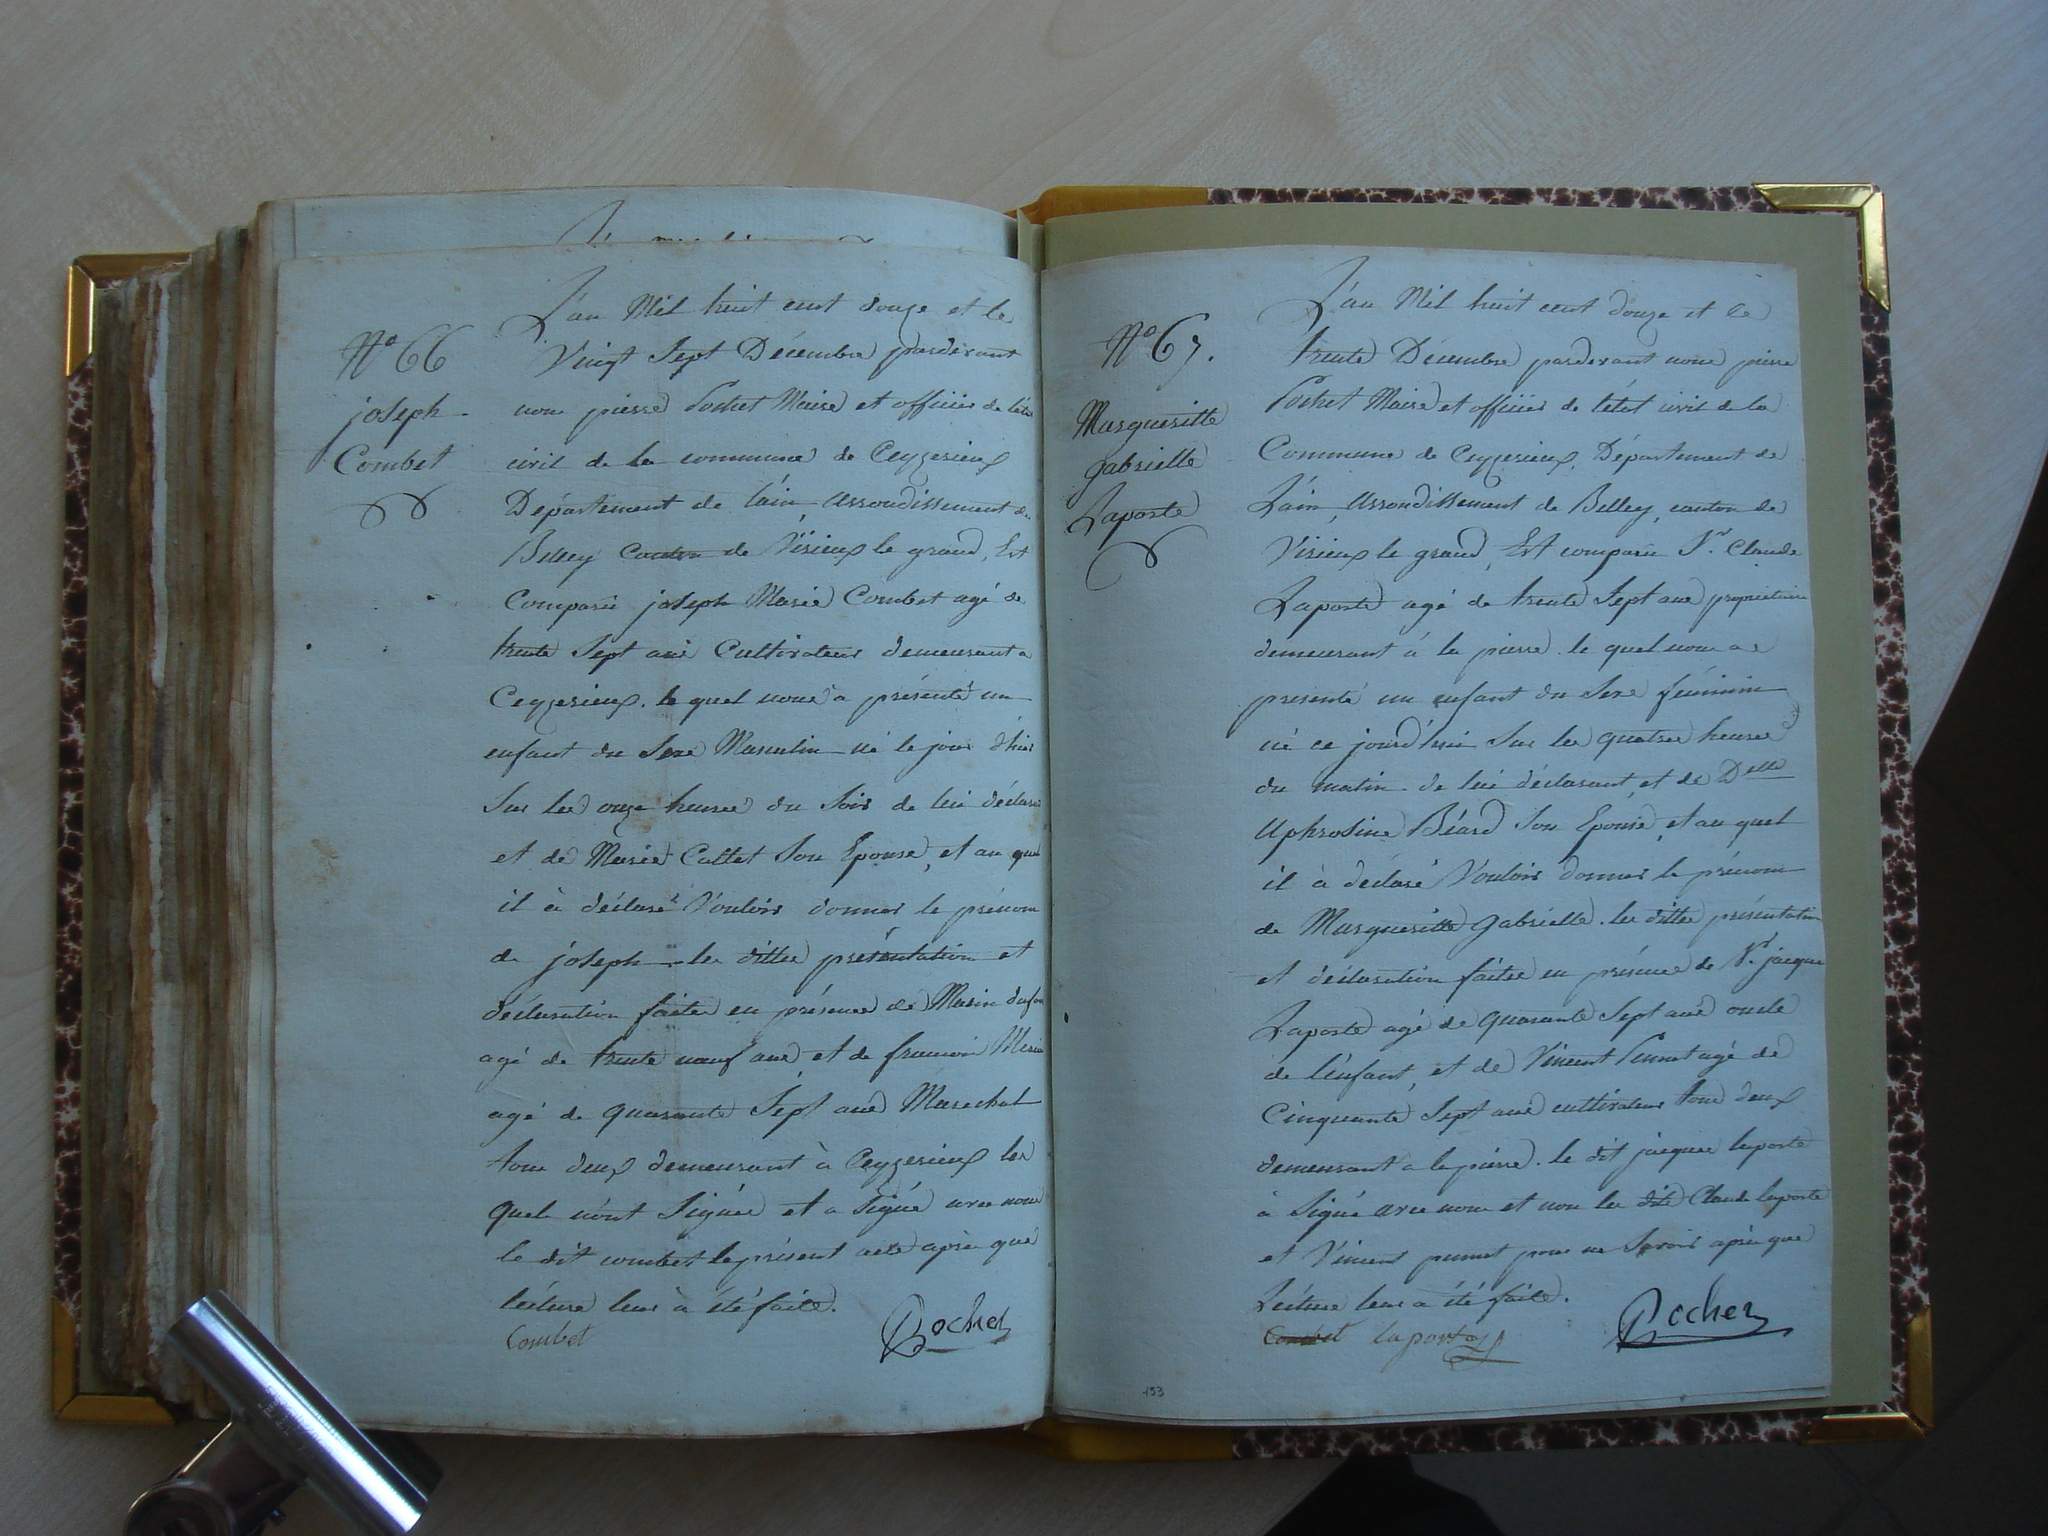 N.o 66
joseph
Combet
L'an Mil huit cent douze et le
Vingt Sept Décembre pardevant
nous pierre Pochet Maire et officier de l'état
civil de la commune de Ceyzerieux
Département de l'ain, arrondissement de
Belley Canton de Virieux le grand, Est
Comparu joseph Marie Combet agé de
trente Sept ans Cultivateur demeurant a
Ceyzerieux. le quel nous a présenté un
enfant du Sexe Masculin né le jour d'hier
Sur les onze heures du Soir de lui déclarant
et de Marie Callet Son Epouse, et au quel
il à déclaré Vouloir donner le prénom
de joseph les dittes présentation et
déclaration faites en présence de Marin
agé de trente neuf ans, et de francois
agé de quarante Sept ans Marechal
tous deux demeurant à Ceyzerieux les
quels n'ont Signés et a Signé avec nous
le dit combet le présent acte après que
lécture leur à été faite.
Combet Pochet
N.o 67.
Margueritte
gabrielle
Laporte
L'an Mil huit cent douze et le
trente Décembre pardevant nous pierre
Pochet Maire et officier de l'état civil de la
Commune de Ceyzerieux, Département de
L'ain, arrondissement de Belley, canton de
Virieux le grand, Est comparu S.r Claude
Laporte agé de trente Sept ans propriétaire
demeurant à la pierre. le quel nous a
presenté un enfant du Sexe féminin
né ce jourd'hui Sur les quatre heures
du matin de lui déclarant, et de Delle
Uphrosine Béard Son Epouse, et au quel
il à déclaré Vouloir donner le prénom
de Margueritte gabrielle. les dittes présentation
et déclaration faites en présence de S.r jacques
Laporte agé de quarante Sept ans oncle
de l'enfant, et de Vincent agé de
Cinquante Sept ans cultivateur tous deux
demeurant a la pierre. le dit jacques laporte
à Signé avec nous et non les dits Claude laporte
et Vincent pour ne Savoir après que
Lécture leur a été faite.
Combet laporte Pochet
153